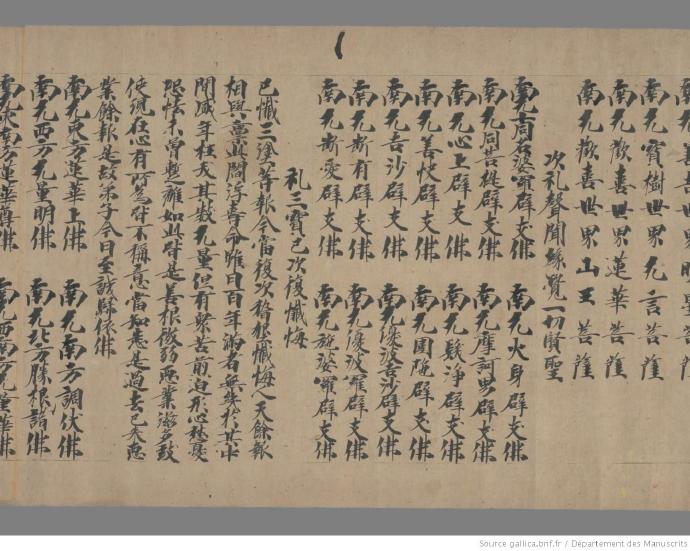 明星菩薩
南无寶樹世界无言菩薩
南无歡喜世界蓮華菩薩
南无歡喜世界山王菩薩
次礼聲聞緣覺一切賢聖
南无同名婆羅辟支佛 南无火身辟支佛
南无同菩提辟支佛 南无摩訶男辟支佛
南无心上辟支佛 南无髮淨辟支佛
南无善快辟支佛 南无圍陁辟支佛
南无吉沙辟支佛 南无優波吉沙辟支佛
南无斷有辟支佛 南无優波羅辟支佛
南无斷愛辟支佛 南无施婆羅辟支佛
礼三寶已次復懺悔
已懺三塗等報今當復次稽顙懺悔人天餘報
相與稟此閻浮壽命雖曰百年滿者無幾於其中
間盛年枉夭其數无量但有衆苦前迫形心愁憂
恐怖不曾暫離如此皆是善根微弱惡業滋多致
使現在心有所爲皆不稱意當知悉是過去已來惡
業餘報是故弟子今日至誠歸依佛
南无東方蓮華上佛 南无南方調伏佛
南无西方无量明佛 南无北方勝根諸佛
南无東南方蓮華尊佛 南无西南方无量華佛
Source gallica.bnf.fr / Département des Manuscrits